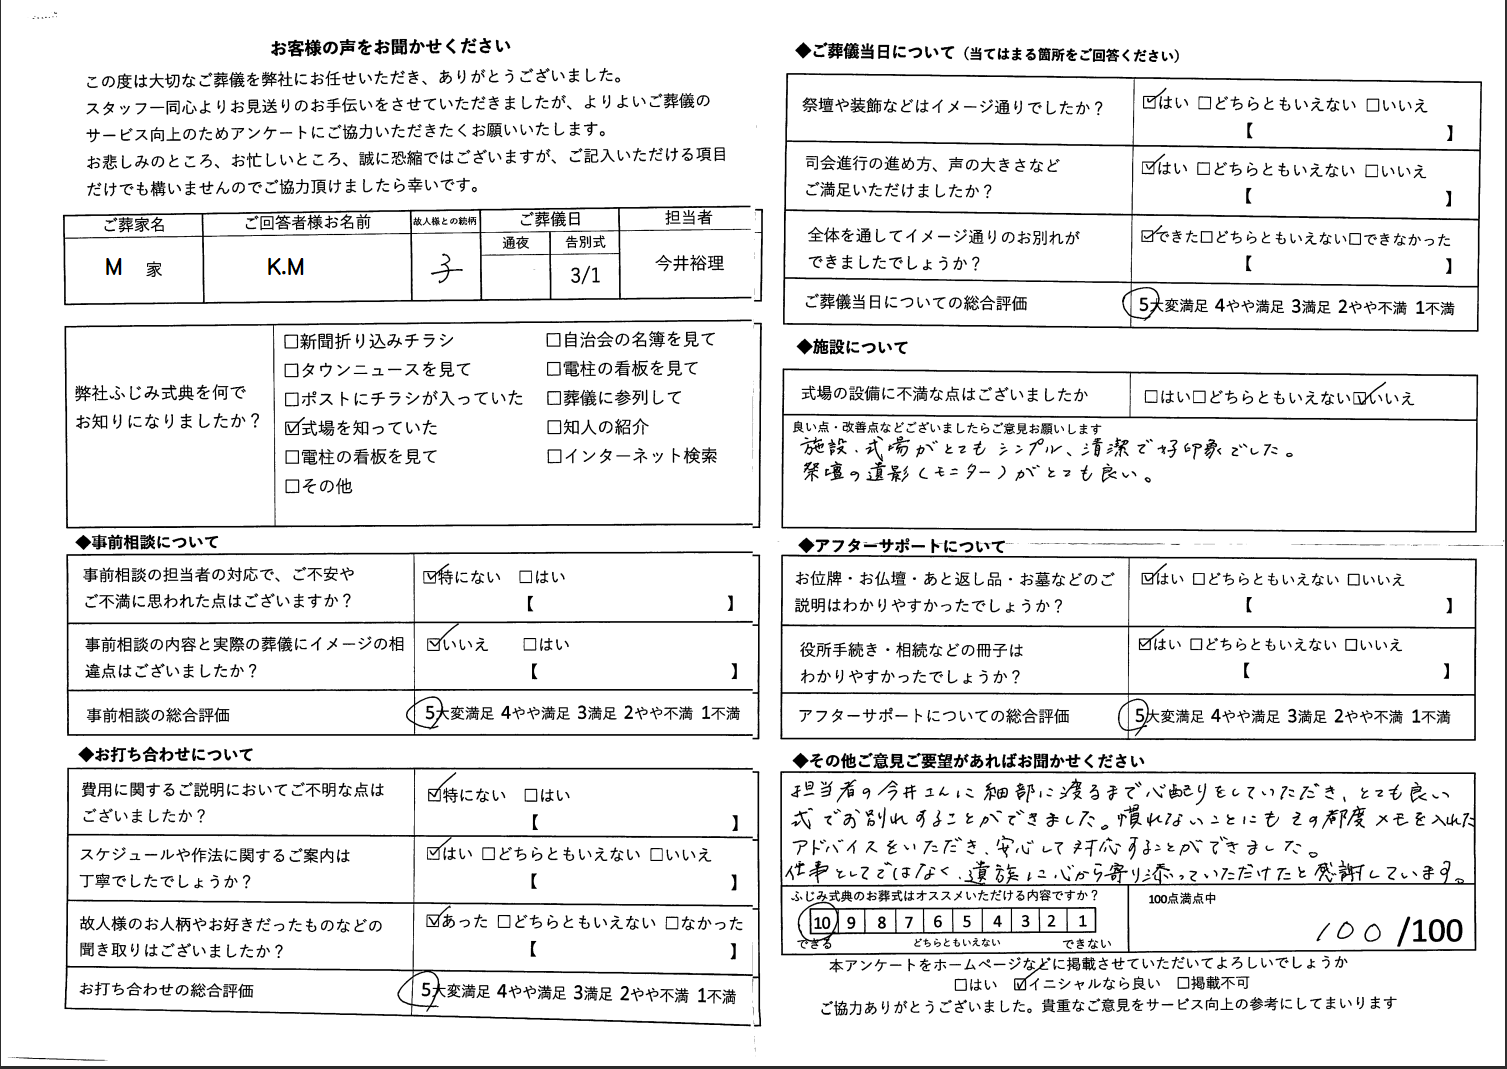 お客様の声をお聞かせください
この度は大切なご葬儀を弊社にお任せいただき、ありがとうございました。
スタッフ一同心よりお見送りのお手伝いをさせていただきましたが、よりよいご葬儀の
サービス向上のためアンケートにご協力いただきたくお願いいたします。
お悲しみのところ、お忙しいところ、誠に恐縮ではございますが、ご記入いただける項目
だけでも構いませんのでご協力頂けましたら幸いです。
ご葬家名 ご回答者様お名前 故人様との続柄 ご葬儀日 担当者
通夜 告別式
M 家 K.M 子 3/1 今井裕理
弊社ふじみ式典を何で
お知りになりましたか？
☐新聞折り込みチラシ ☐自治会の名簿を見て
☐タウンニュースを見て ☐電柱の看板を見て
☐ポストにチラシが入っていた ☐葬儀に参列して
☑式場を知っていた ☐知人の紹介
☐電柱の看板を見て ☐インターネット検索
☐その他
◆事前相談について
事前相談の担当者の対応で、ご不安や
ご不満に思われた点はございますか？
☑特にない ☐はい
【 】
事前相談の内容と実際の葬儀にイメージの相
違点はございましたか？
☑いいえ ☐はい
【 】
事前相談の総合評価 5大変満足 4やや満足 3満足 2やや不満 1不満
◆お打ち合わせについて
費用に関するご説明においてご不明な点は
ございましたか？
☑特にない ☐はい
【 】
スケジュールや作法に関するご案内は
丁寧でしたでしょうか？
☑はい ☐どちらともいえない ☐いいえ
【 】
故人様のお人柄やお好きだったものなどの
聞き取りはございましたか？
☑あった ☐どちらともいえない ☐なかった
【 】
お打ち合わせの総合評価 5大変満足 4やや満足 3満足 2やや不満 1不満
◆ご葬儀当日について（当てはまる箇所をご回答ください）
祭壇や装飾などはイメージ通りでしたか？ ☑はい ☐どちらともいえない ☐いいえ
【 】
司会進行の進め方、声の大きさなど
ご満足いただけましたか？
☑はい ☐どちらともいえない ☐いいえ
【 】
全体を通してイメージ通りのお別れが
できましたでしょうか？
☑できた☐どちらともいえない☐できなかった
【 】
ご葬儀当日についての総合評価 5大変満足 4やや満足 3満足 2やや不満 1不満
◆施設について
式場の設備に不満な点はございましたか ☐はい☐どちらともいえない☑いいえ
良い点・改善点などございましたらご意見お願いします
施設、式場がとてもシンプル、清潔で好印象でした。
祭壇の遺影(モニター)がとても良い。
◆アフターサポートについて
お位牌・お仏壇・あと返し品・お墓などのご
説明はわかりやすかったでしょうか？
☑はい ☐どちらともいえない ☐いいえ
【 】
役所手続き・相続などの冊子は
わかりやすかったでしょうか？
☑はい ☐どちらともいえない ☐いいえ
【 】
アフターサポートについての総合評価 5大変満足 4やや満足 3満足 2やや不満 1不満
◆その他ご意見ご要望があればお聞かせください
担当者の今井さんに細部に渡るまで心配りをしていただき、とても良い
式でお別れすることができました。慣れないことにもその都度メモを入れた
アドバイスをいただき、安心して対応することができました。
仕事としてではなく、遺族に心から寄り添っていただけたと感謝しています。
ふじみ式典のお葬式はオススメいただける内容ですか？
10 9 8 7 6 5 4 3 2 1
できる どちらともいえない できない
100点満点中
100 /100
本アンケートをホームページなどに掲載させていただいてよろしいでしょうか
☐はい ☑イニシャルなら良い ☐掲載不可
ご協力ありがとうございました。貴重なご意見をサービス向上の参考にしてまいります